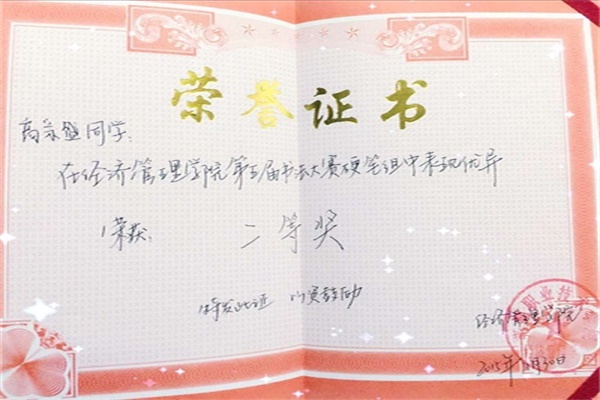 荣誉证书
同学:
在经济管理学院第五届书法大赛硬笔组中表现优异
荣获:
二等奖
特发此证 以资鼓励
职业技
经济管理学院
2015年 月30日